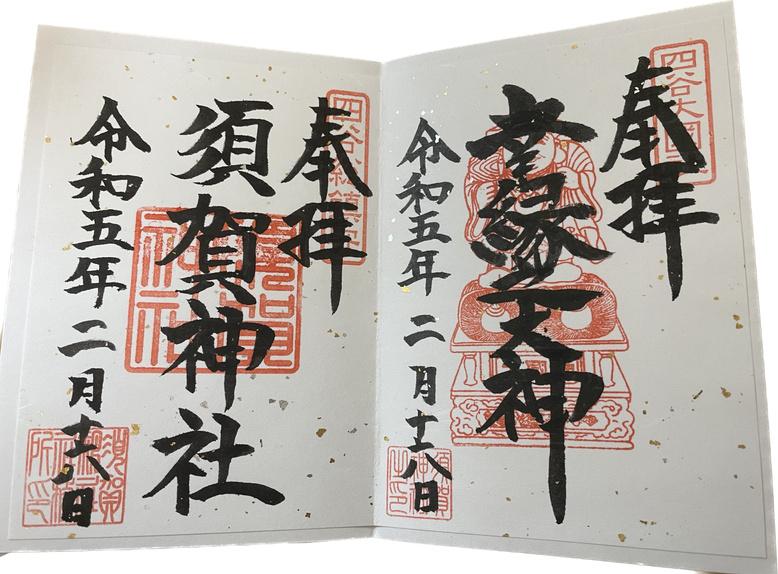 奉拝
幸縁天神
令和五年二月十八日
四谷総鎮守
奉拝
須賀神社
須賀神社
令和五年二月十八日